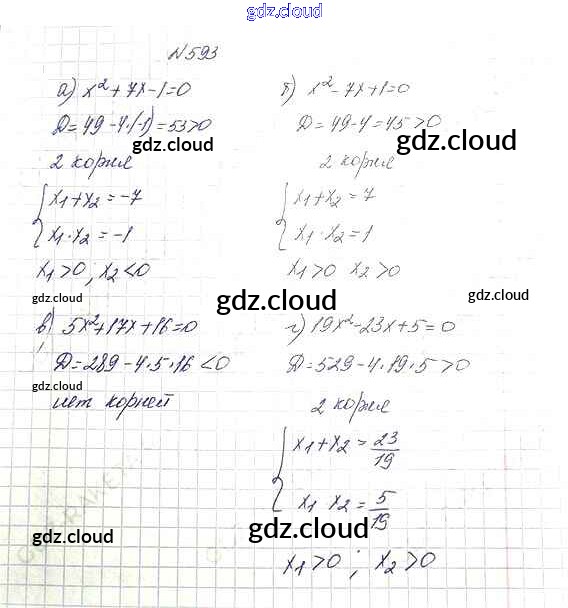 gdz.cloud
№593
а) x²+7x-1=0
D=49-4·(-1)=53>0
gdz.cloud
2 корня
{ x₁+x₂=-7
x₁·x₂=-1
x₁>0; x₂<0
gdz.cloud
б) x²-7x+1=0
D=49-4=45>0
gdz.cloud
2 корня
{ x₁+x₂=7
x₁·x₂=1
x₁>0 x₂>0
gdz.cloud
gdz.cloud
в) 5x²+17x+16=0
D=289-4·5·16<0
gdz.cloud
нет корней
gdz.cloud
г) 19x²-23x+5=0
D=529-4·19·5>0
2 корня
{ x₁+x₂=23/19
x₁ x₂=5/19
gdz.cloud
x₁>0; x₂>0